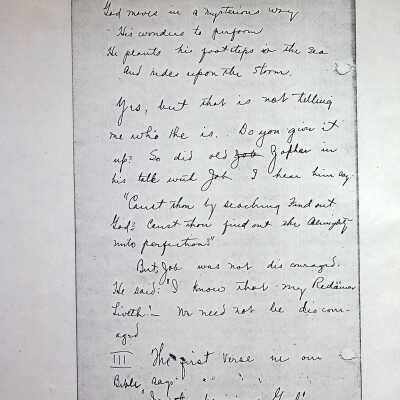 God moves in a mysterious way
His wonders to perform
He plants his footsteps in the sea
And rides upon the storm.
Yes, but that is not telling
me who he is. Do you give it
up? So did old Job Zophar in
his talk with Job I hear him say
"Canst thou by seaching find out
God? Canst thou find out the Almighty
unto perfection?"
But Job was not discouraged.
He said: "I know that my Redeemer
Liveth!— We need not be discour-
aged
III The first verse in our
Bible, says